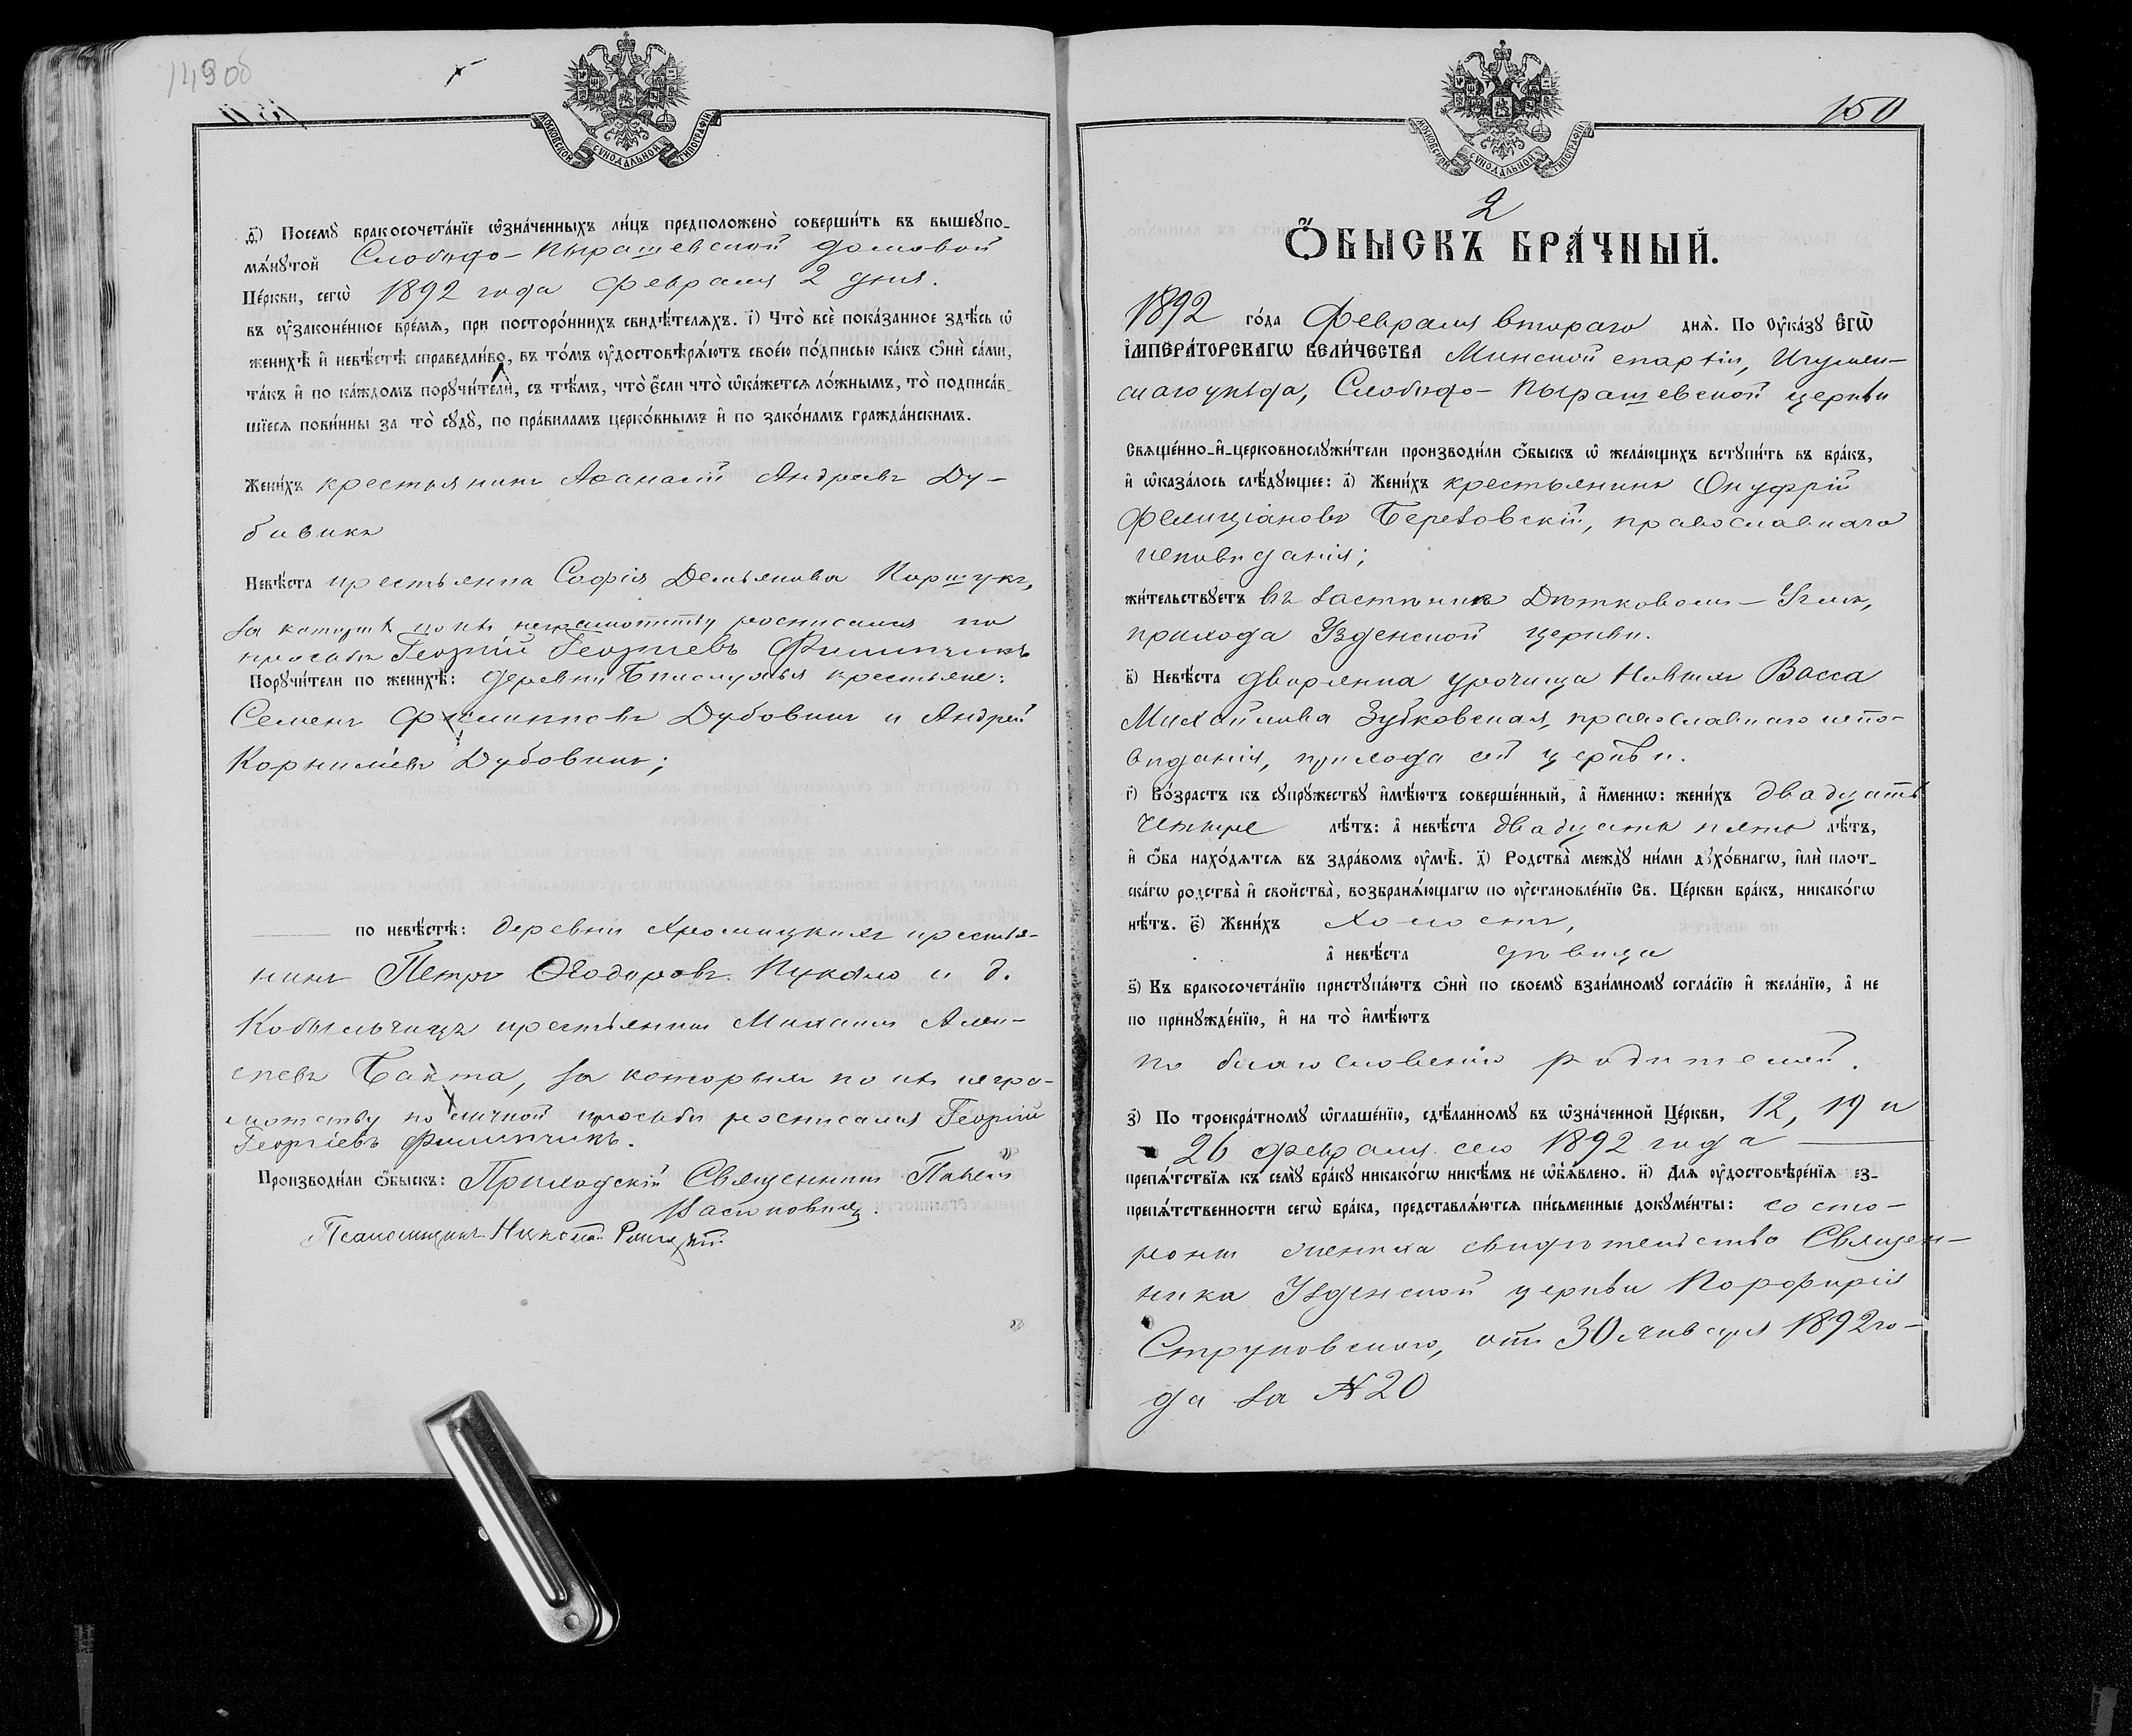 149об
МОСКОВСКОЙ СѴНОДАЛЬНОЙ ТИПОГРАФІИ
ѳ҃) Посемꙋ̀ бракосочета́нїе ѡ҆зна́ченныхъ ли́цъ предположено̀ соверши́ть въ вышеꙋпо-
мѧ́нꙋтой Слободо-Пырашевской домовой
Це́ркви, сегѡ̀ 1892 года Февраля 2 дня.
въ ᲂу҆законе́нное вре́мѧ, при посторо́ннихъ свидѣ́телѧхъ. і҃) Что̀ всѐ пока́занное здѣ́сь ѡ҆
женихѣ̀ и҆ невѣ́стѣ справедли́во, въ то́мъ ᲂу҆достовѣрѧ́ютъ свое́ю по́дписью ка́къ ѻ҆нѝ са́ми,
та́къ и҆ по ка́ждомъ порꙋчи́тели, съ тѣ́мъ, что̀ є҆́сли что̀ ѡ҆ка́жетсѧ ло́жнымъ, то̀ подписа́в-
шїесѧ пови́нны за то̀ сꙋдꙋ̀, по пра́виламъ церко́внымъ и҆ по зако́намъ гражда́нскимъ.
Жени́хъ крестьянинъ Аѳанасій Андреевъ Ду-
бовикъ
Невѣ́ста крестьянка Софія Демьянова Коршукъ,
за которыхъ по ихъ неграмотству росписался по
просьбѣ Георгій Георгіевъ Филипчикъ
Порꙋчи́тели по женихѣ̀: деревни крестьяне:
Семенъ Филипповъ Дубовикъ и Андрей
Корниліевъ Дубовикъ;
по невѣ́стѣ: деревни крестья-
нинъ Петръ Ѳеодоровъ Пукало и д.
Кобыльчицъ крестьянинъ Михаилъ Алек-
сѣевъ Бахта, за которыхъ по ихъ негра-
мотству по личной просьбѣ росписался Георгій
Георгіевъ Филипчикъ.
Производи́ли ѻ҆́быскъ: Приходскій Священникъ Павелъ
Псаломщикъ
150
МОСКОВСКОЙ СѴНОДАЛЬНОЙ ТИПОГРАФІИ
2
Ѻ҆́БЫСКЪ БРА́ЧНЫЙ.
1892 го́да Февраля втораго днѧ̀. По ᲂу҆ка́зꙋ Е҆гѡ̀
І҆мпера́торскагѡ Вели́чества Минской епархіи, Игумен-
скаго уѣзда, Слободо-Пырашевской церкви
Свѧще́нно-и҆-церковнослꙋжи́тели производи́ли ѻ҆́быскъ ѡ҆ жела́ющихъ встꙋпи́ть въ бра́къ,
и҆ ѡ҆каза́лось слѣ́дꙋющее: а҃) Жени́хъ крестьянинъ Онуфрій
Фелиціановъ Березовскій, православнаго
исповѣданія;
жи́тельствꙋетъ въ застѣнкѣ Дѣтковомъ-Углѣ,
прихода Узденской церкви.
в҃) Невѣ́ста дворянка урочища Новинъ Васса
Михайлова Зубковская, православнаго испо-
вѣданія, прихода сей церкви.
г҃) Во́зрастъ къ сꙋпрꙋ́жествꙋ и҆мѣ́ютъ соверше́нный, а҆ и҆́меннѡ: жени́хъ двадцать
четыре лѣ́тъ: а҆ невѣ́ста двадцать пять лѣ́тъ,
и҆ ѻ҆́ба нахо́дѧтсѧ въ здра́вомъ ᲂу҆мѣ̀. д҃) Родства̀ междꙋ̀ ни́ми дꙋхо́внагѡ, и҆лѝ плот-
ска́гѡ родства̀ и҆ свойства̀, возбранѧ́ющагѡ по ᲂу҆становле́нїю Св. Це́ркви бра́къ, никако́гѡ
нѣ́тъ. є҃) Жени́хъ холостъ,
а҆ невѣ́ста дѣвица
ѕ҃) Къ бракосочета́нїю пристꙋпа́ютъ ѻ҆нѝ по своемꙋ̀ взаи́мномꙋ согла́сїю и҆ жела́нїю, а҆ не
по принꙋжде́нїю, и҆ на то̀ и҆мѣ́ютъ
по благословенію родителей.
з҃) По троекра́тномꙋ ѡ҆глаше́нїю, сдѣ́ланномꙋ въ ѡ҆зна́ченной Це́ркви, 12, 19 и
26 февраля сего 1892 года
препѧ́тствїѧ къ семꙋ̀ бра́кꙋ никако́гѡ никѣ́мъ не ѡ҆б̾ѧ́влено. и҃) Длѧ ᲂу҆достовѣре́нїѧ без-
препѧ́тственности сегѡ̀ бра́ка, представлѧ́ютсѧ пи́сьменные докꙋме́нты: со сто-
роны жениха свидѣтельство Священ-
ника Узденской церкви Порфирія
Струковскаго, отъ 30 января 1892 го-
да за № 20